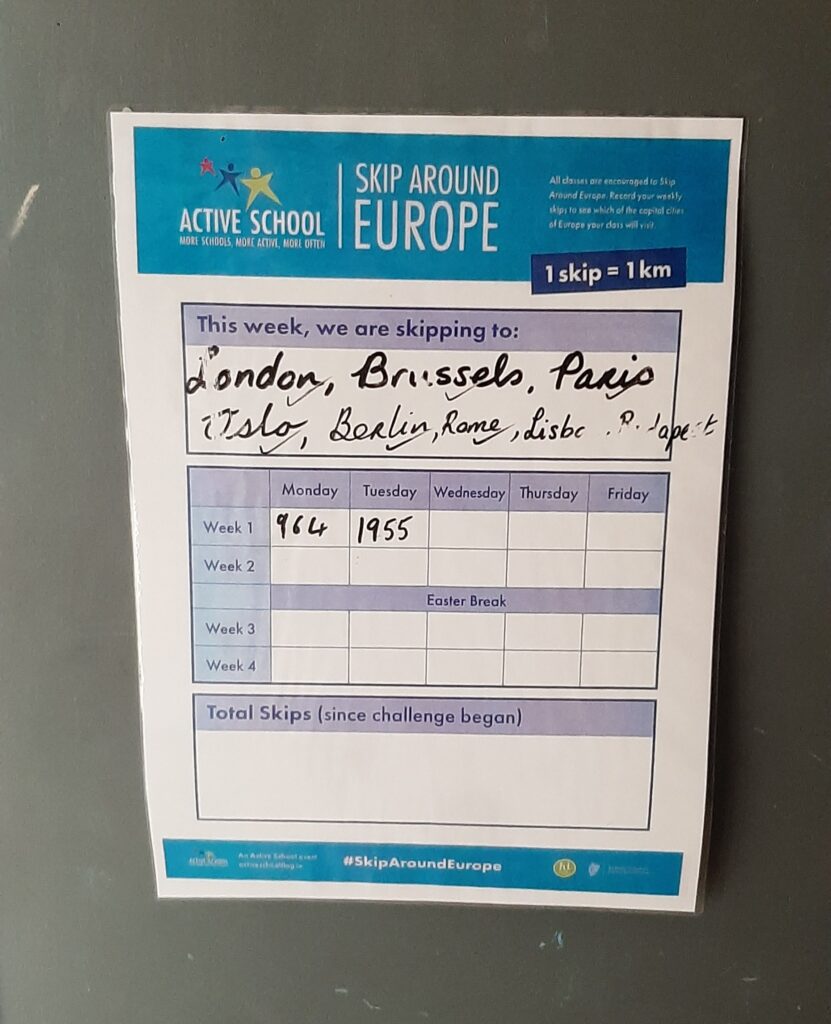 ACTIVE SCHOOL
MORE SCHOOLS, MORE ACTIVE, MORE OFTEN
SKIP AROUND
EUROPE
All classes are encouraged to Skip
Around Europe. Record your weekly
skips to see which of the capital cities
of Europe your class will visit.
1 skip = 1 km
This week, we are skipping to:
London, Brussels, Paris
Oslo, Berlin, Rome,
Monday Tuesday Wednesday Thursday Friday
Week 1 964 1955
Week 2
Easter Break
Week 3
Week 4
Total Skips (since challenge began)
An Active School event
#SkipAroundEurope